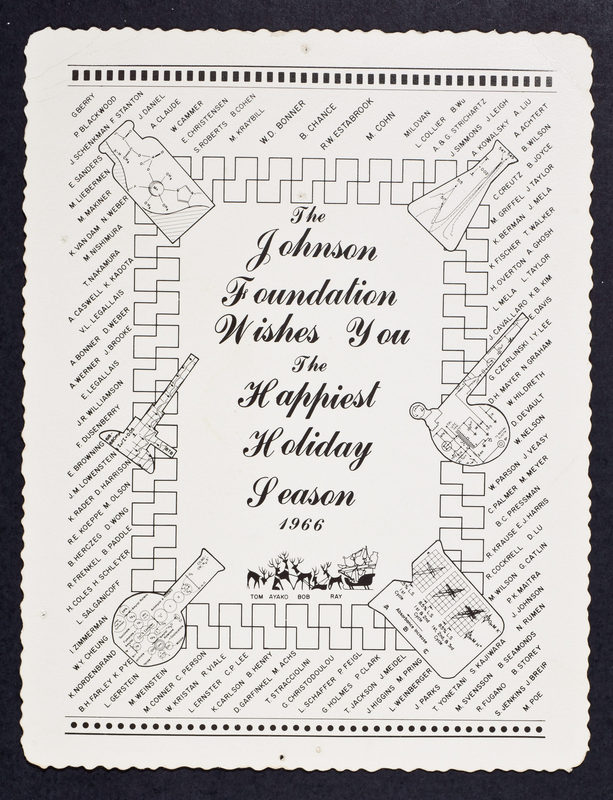 G. BERRY
P. BLACKWOOD
J. SCHENKMAN F. STANTON
J. DANIEL
E. SANDERS
A. CLAUDE
M. LIEBERMEN
W. CAMMER
M. MAKINER
E. CHRISTENSEN
K. VAN DAM N. WEBER
S. ROBERTS B. COHEN
M. NISHIMURA
M. KRAYBILL
T. NAKAMURA
W.D. BONNER
A. CASWELL K. KADOTA
B. CHANCE
V.L. LEGALLAIS
R.W. ESTABROOK
A. BONNER D. WEBER
M. COHN
A. WERNER J. BROOKE
E. LEGALLAIS
J.R. WILLIAMSON
F. DUSENBERRY
E. BROWNING
J.M. LOWENSTEIN
K. RADER D. HARRISON
R.E. KOEPPE M. OLSON
B. HERCZEG D. WONG
R. FRENKEL B. PADDLE
H. COLES H. SCHLEYER
L. SALGANICOFF
I. ZIMMERMAN
W.Y. CHEUNG
K. NORDENBRAND
B.H. FARLEY K. PYE
L. GERSTEIN
M. WEINSTEIN
M. CONNER C. PERSON
W. KRISTAN R. HALE
L. ERNSTER C.P. LEE
K. CARLSON B. HENRY
D. GARFINKEL M. ACHS
T. STRACCIOLINI
G. CHRISTODOULOU
L. SCHAFFER P. FEIGL
G. HOLMES P. CLARK
T. JACKSON J. MEIDEL
J. HIGGINS M. PRING
L. WEINBERGER
J. PARKS
T. YONETANI S. KAJIWARA
M. SVENSSON
R. FUGANO B. SEAMONDS
S. JENKINS J. BREIR B. STOREY
M. POE
MILDVAN
L. COLLIER B. WU
A. & G. STRICHARTZ
J. SIMMONS J. LEIGH
A. KOWALSKY A. LIU
A. ACHTERT
B. WILSON
C. CREUTZ B. JOYCE
M. GRIFFEL J. TAYLOR
K. BERMAN J. MELA
K. FISCHER T. WALKER
H. OVERTON A. GHOSH
L. MELA L. TAYLOR
J. CAVALLARO H.B. KIM
E. DAVIS
G. CZERLINSKI I.Y. LEE
D.H. MAYER N. GRAHAM
W. HILDRETH
D. DEVAULT
W. NELSON
W. PARSON J. VEASY
C. PALMER M. MEYER
B.C. PRESSMAN
R. KRAUSE E.J. HARRIS
R. COCKRELL D. LU
M. WILSON G. CATLIN
P.K. MAITRA
J. JOHNSON
H. RUMEN
The
Johnson
Foundation
Wishes You
The
Happiest
Holiday
Season
1966
TOM AYAKO BOB RAY
A
B
C